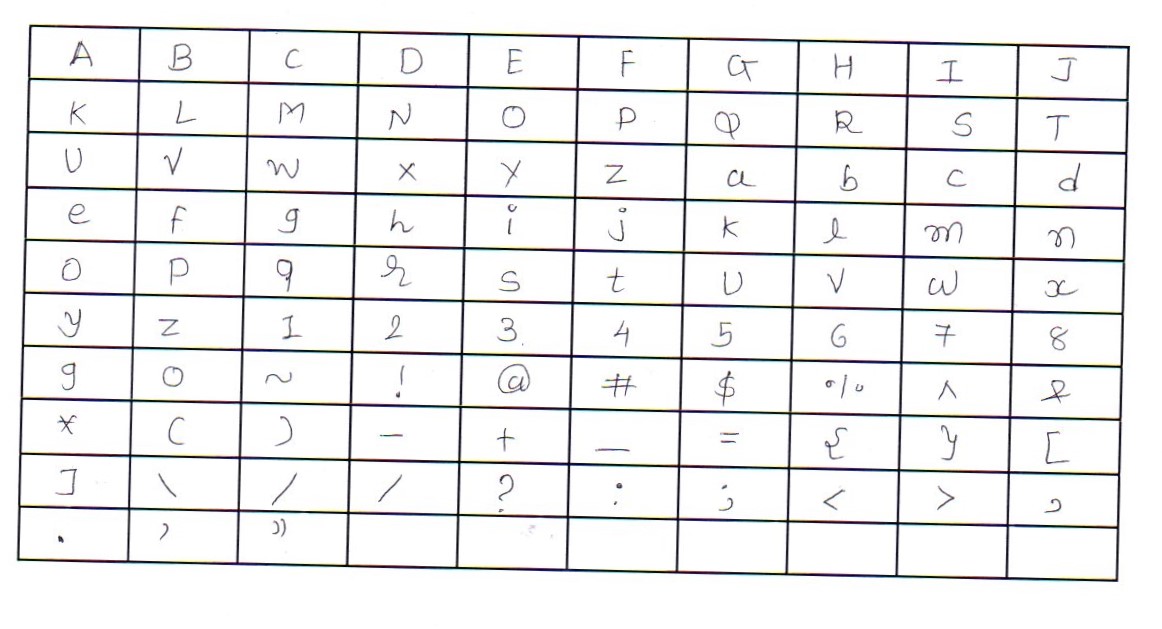 A B C D E F G H I J
K L M N O P Q R S T
U V W X Y Z a b c d
e f g h i j k l m n
o p q r s t u v w x
y z 1 2 3 4 5 6 7 8
9 0 ~ ! @ # $ % ^ &
* ( ) - + _ = { } [
] \ / / ? : ; < > ,
. ’ ”